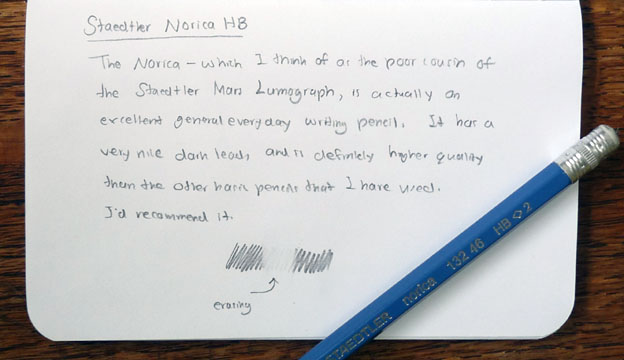 Staedtler Norica HB
The Norica – which I think of as the poor cousin of
the Staedtler Mars Lumograph, is actually an
excellent general everyday writing pencil. It has a
very nice dark lead, and is definitely higher quality
than the other basic pencils that I have used.
I'd recommend it.
erasing
STAEDTLER norica 132 46 HB ◇ 2